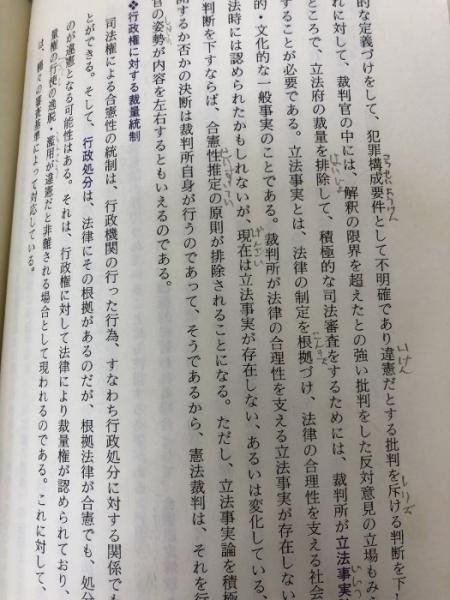 的な定義づけをして、犯罪構成要件として不明確であり違憲だとする批判を斥ける判断を下し
れに対して、裁判官の中には、解釈の限界を超えたとの強い批判をした反対意見の立場もみら
ところで、立法府の裁量を排除して、積極的な司法審査をするためには、裁判所が立法事実
することが必要である。立法事実とは、法律の制定を根拠づけ、法律の合理性を支える社会
的・文化的な一般事実のことである。裁判所が法律の合理性を支える立法事実が存在しない
法時には認められたかもしれないが、現在は立法事実が存在しない、あるいは変化している、
判断を下すならば、合憲性推定の原則が排除されることになる。ただし、立法事実論を積極
用するか否かの決断は裁判所自身が行うのであって、そうであるから、憲法裁判は、それを行
官の姿勢が内容を左右するともいえるのである。
❖行政権に対する裁量統制
司法権による合憲性の統制は、行政機関の行った行為、すなわち行政処分に対する関係でも
とができる。そして、行政処分は、法律にその根拠があるのだが、根拠法律が合憲でも、処分
のが違憲となる可能性はある。それは、行政権に対して法律により裁量権が認められており、
量権の行使の逸脱・濫用が違憲だと非難される場合として現われるのである。これに対して、
は、種々の審査基準によって対応している。